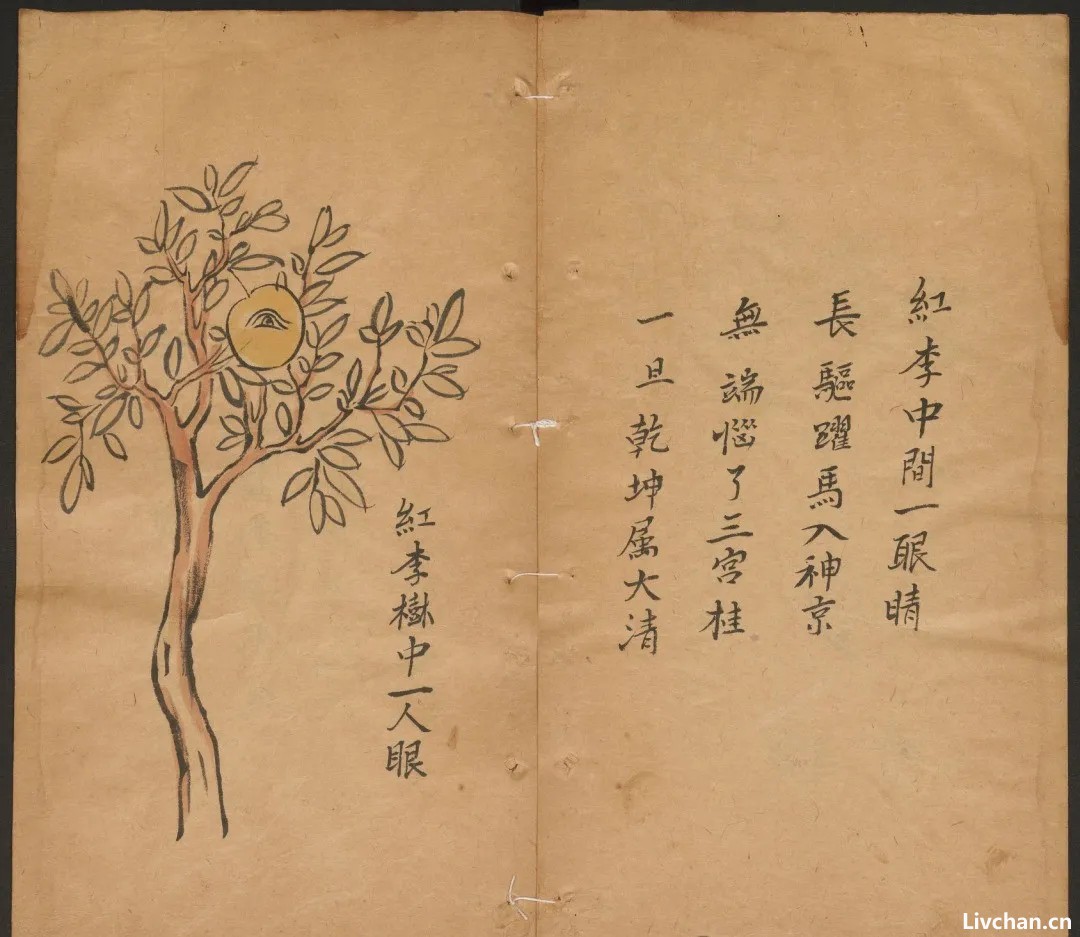 紅李中間一眼睛
長驅躍馬入神京
無端惱了三宮桂
一旦乾坤属大清
紅李樹中一人眼
Livchan.cn